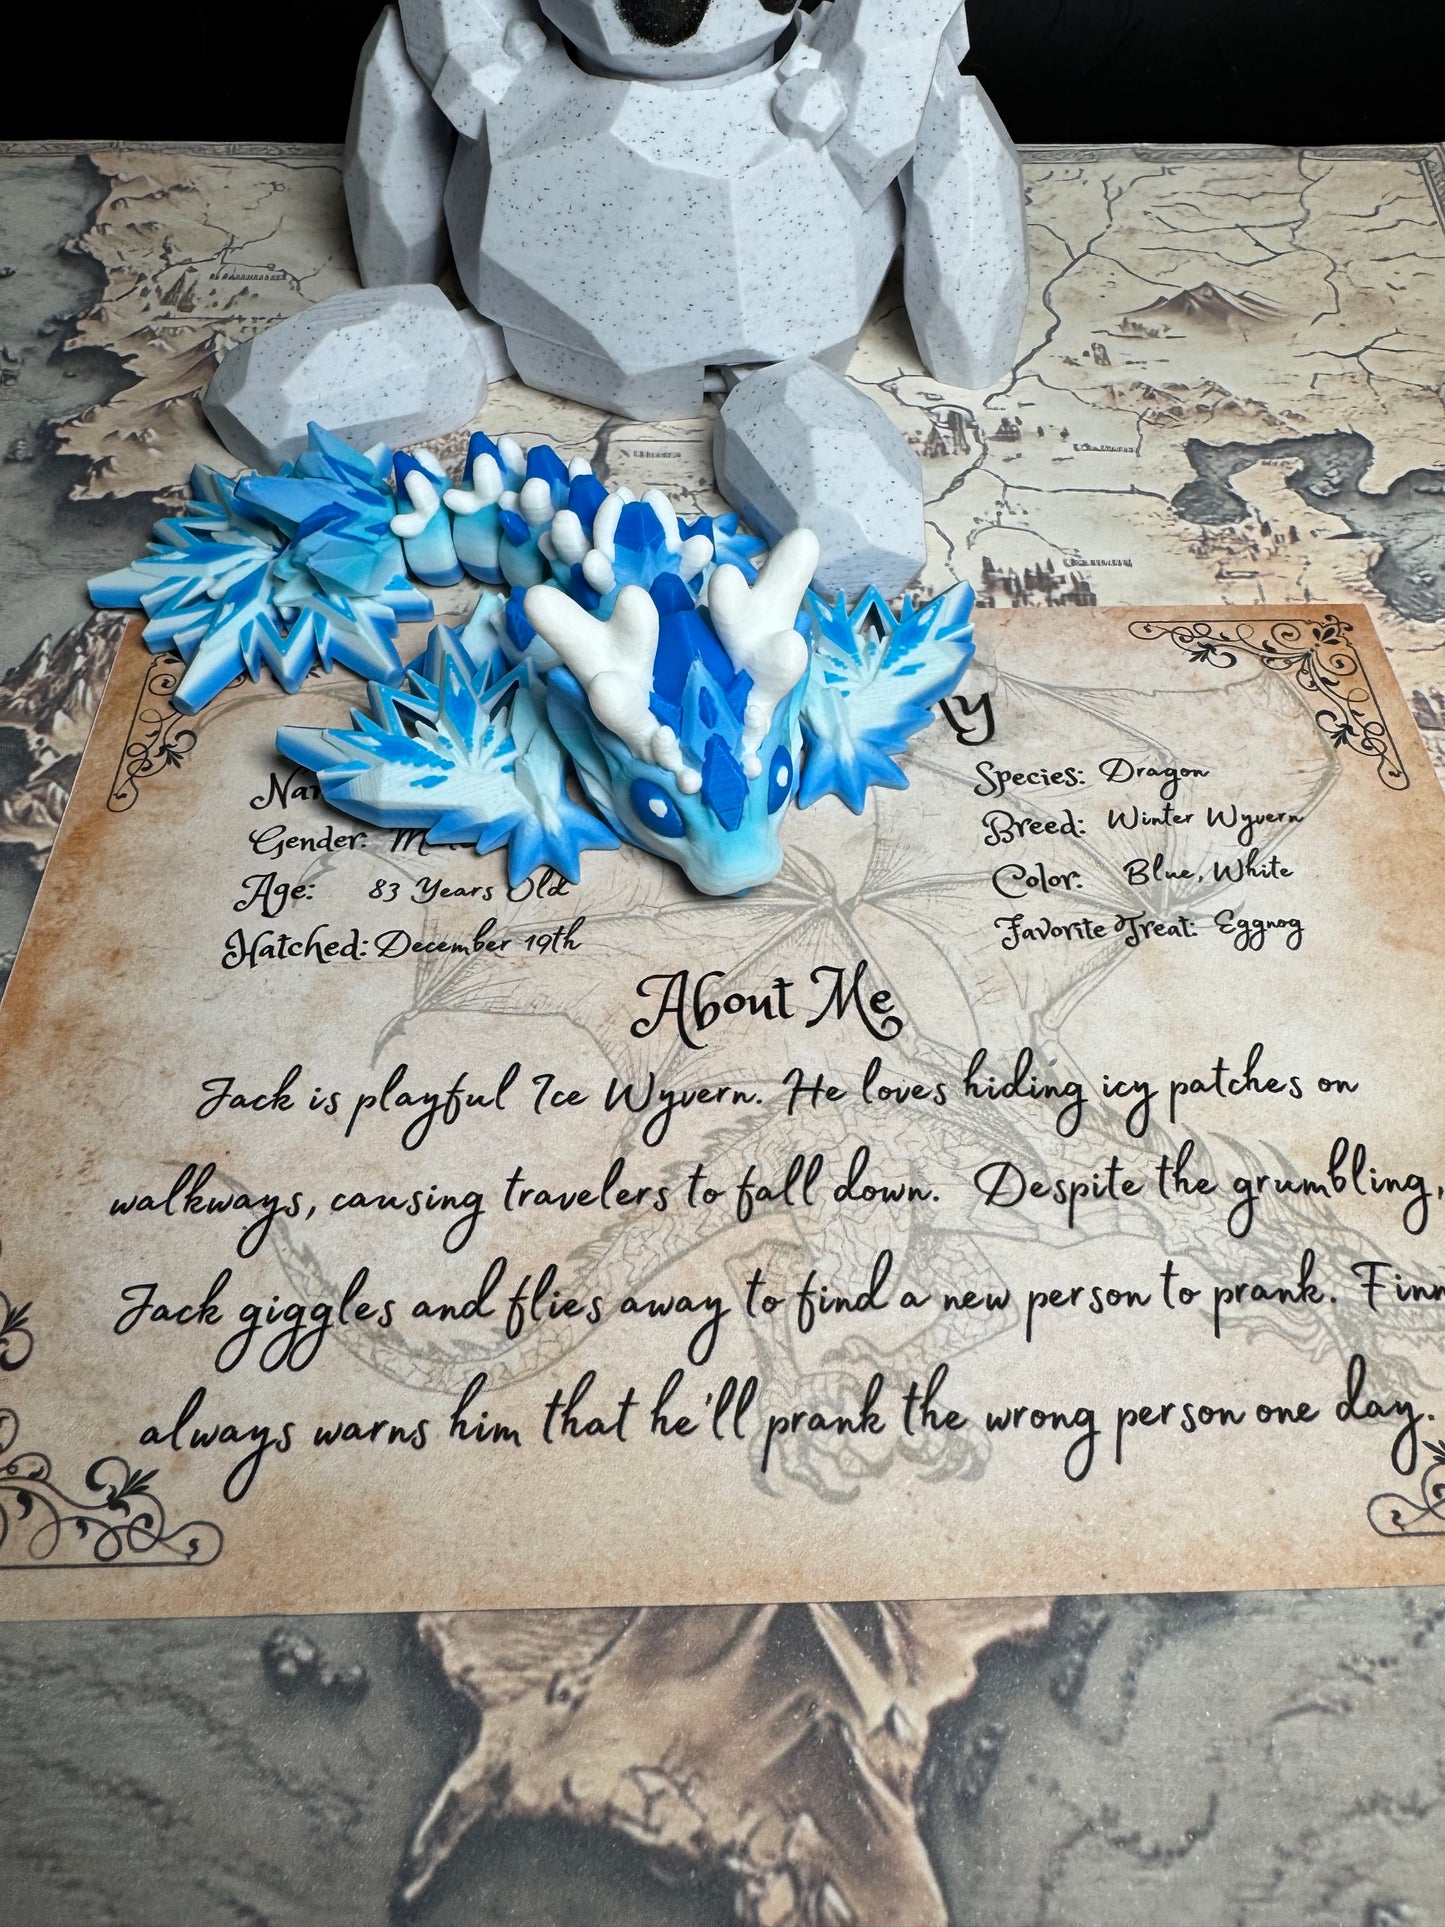 Species: Dragon
Gender:
Breed: Winter Wyvern
Age: 83 Years Old
Color: Blue, White
Hatched: December 19th
Favorite Treat: Eggnog
About Me
Jack is playful Ice Wyvern. He loves hiding icy patches on
walkways, causing travelers to fall down. Despite the grumbling,
Jack giggles and flies away to find a new person to prank. Finn
always warns him that he'll prank the wrong person one day.